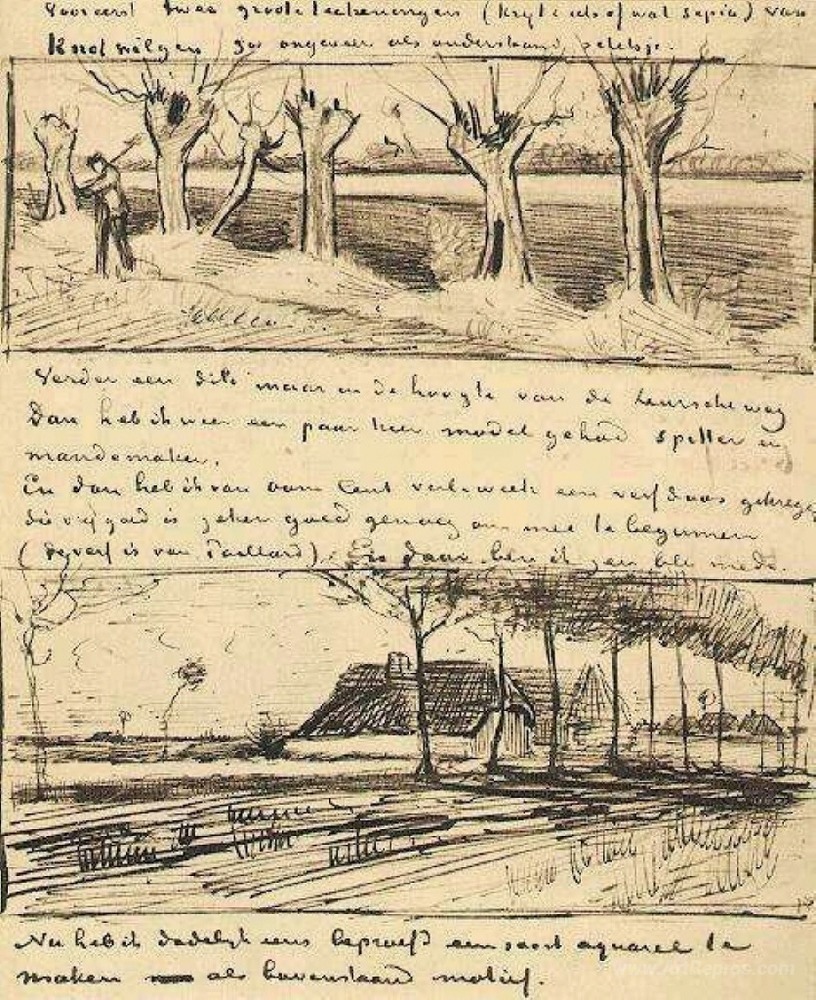 Vooreerst twee groote teekeningen (krijt & ietsofwat sepia) van
Knotwilgen zoo ongeveer als onderstaand schetsje.
Verder een dito maar in de hoogte van de Leurscheweg
Dan heb ik weer een paar keer model gehad spitter en
mandemaker.
En dan heb ik van oom Cent verl. week een verfdoos gekregen
die vrij goed is zeker goed genoeg om mee te beginnen
(de verf is van Paillard). En daar ben ik zeer blij mede.
Nu heb ik dadelijk eens beproefd een soort aquarel te
maken als bovenstaand motief.